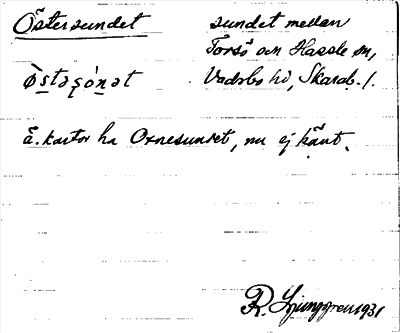 Östersundet sundet mellan
Torsö och Hassle sn,
ö̀stəʂóṇət Vadsbo hd, Skarab. l.
Ä. kartor ha Oxnesundet, nu ej känt.
R. Ljunggren 1931